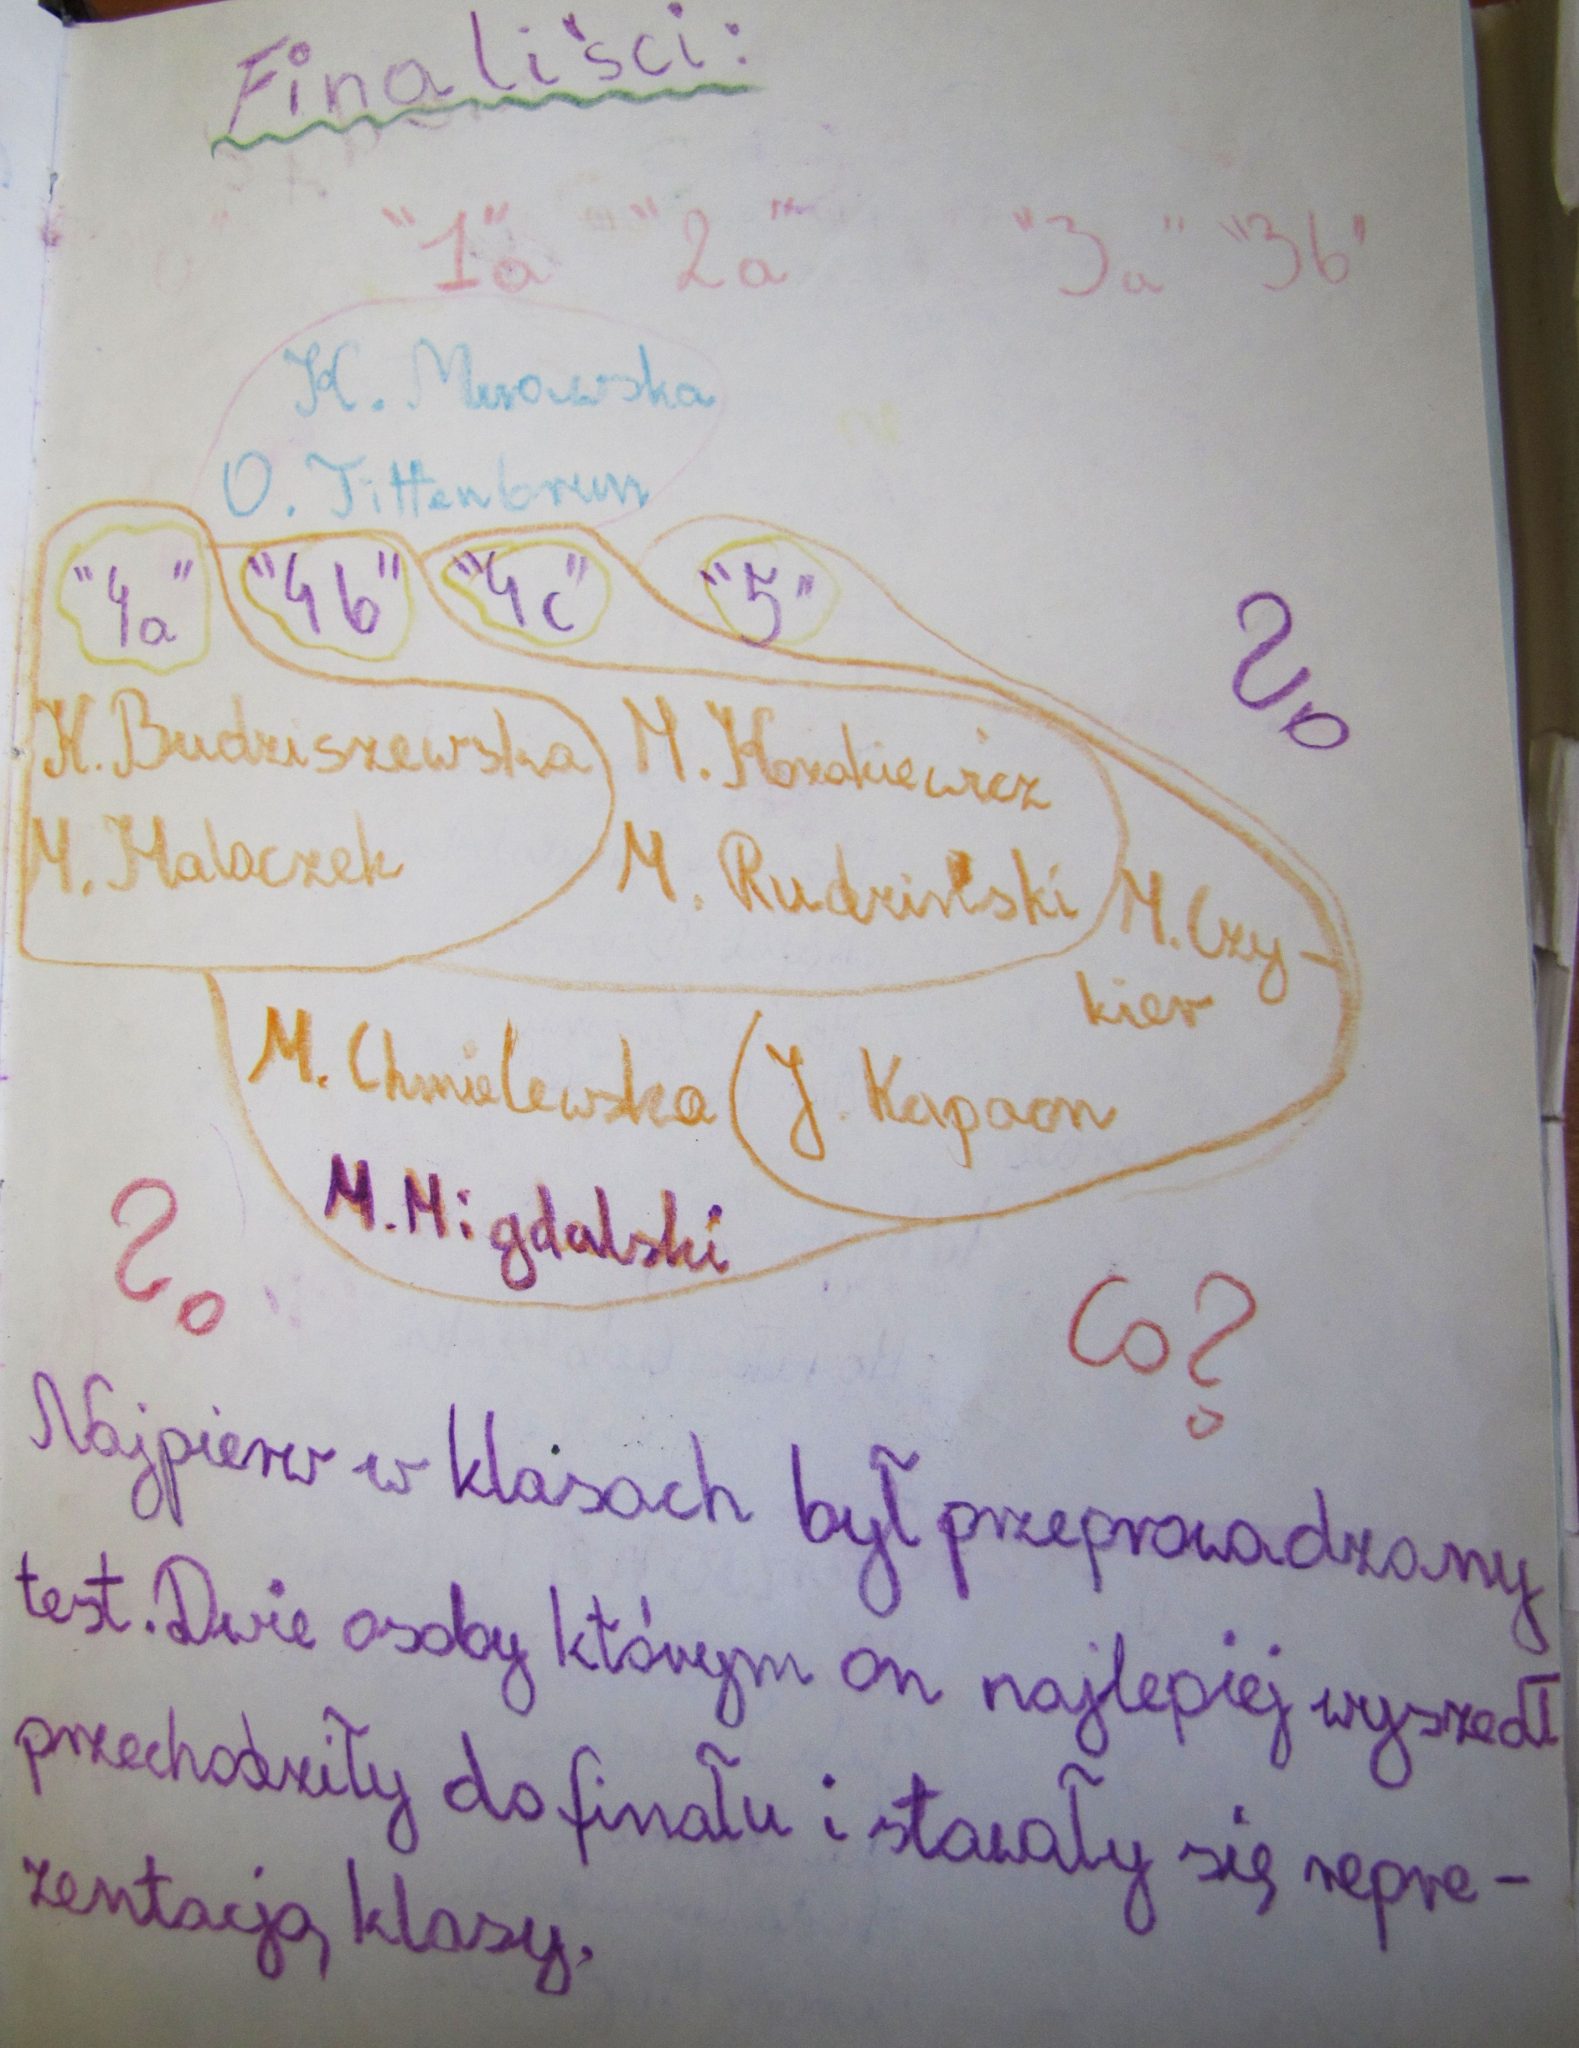 Finaliści:
"1a" "2a" "3a" "3b"
K. Murawska
O. Tittenbrun
"4a" "4b" "4c" "5"
K. Budziszewska
M. Kozakiewicz
M. Malaczek
M. Rudziński
M. Czy-
kier
M. Chmielewska
J. Kapaon
M. Migdalski
?
?
Co?
Najpierw w klasach był przeprowadzany
test. Dwie osoby którym on najlepiej wyszedł
przechodziły do finału i stawały się repre-
zentacją klasy.